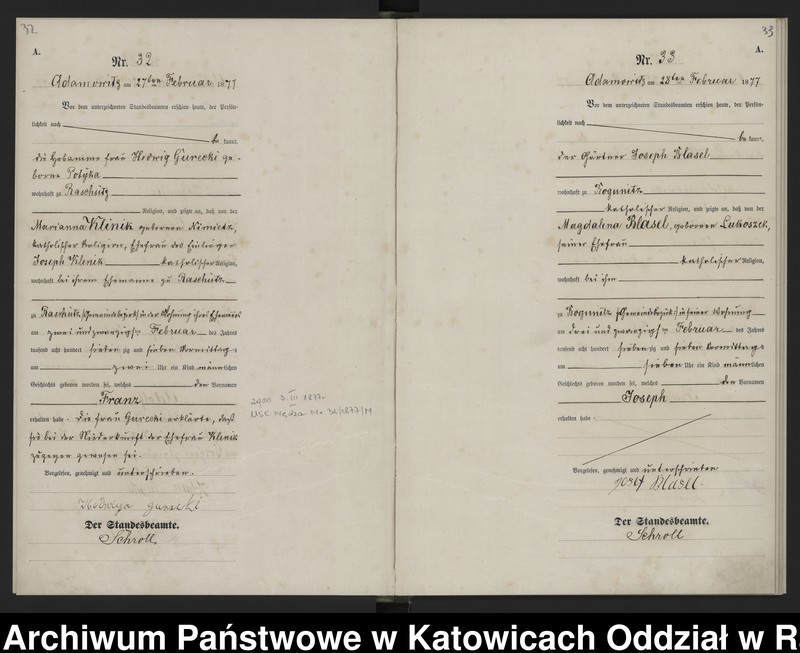 32
A.
Nr. 32
Adamowitz am 27ten Februar 1877
Vor dem unterzeichneten Standesbeamten erschien heute, der Persön-
lichkeit nach
be kannt,
die Hebamme Frau Hedwig Gurecki ge-
borne Potyka
wohnhaft zu Raschütz
Religion, und zeigte an, daß von der
Marianna Klinik geborenen
katholischer Religion, Ehefrau des Einlieger
Joseph Klinik katholischer Religion,
wohnhaft bei ihrem Ehemanne zu Raschütz
zu Raschütz /:Gemeindebezirk:/ in der Wohnung ihres Ehemannes
am zwei und zwanzigsten Februar des Jahres
tausend acht hundert sieben zig und sieben Vormittags
um zwei Uhr ein Kind männlichen
Geschlechts geboren worden sei, welches den Vornamen
Franz
erhalten habe. Die Frau Gurecki erklärte, daß
sie bei der Niederkunft der Ehefrau Klinik
zugegen gewesen sei.
Vorgelesen, genehmigt und unterschrieben.
Hedwiga Gurecki
Der Standesbeamte.
Schroll
zgon 3. III 1877.
USC Nędza Nr 32/1877/M
33
A.
Nr. 33
Adamowitz am 28ten Februar 1877
Vor dem unterzeichneten Standesbeamten erschien heute, der Persön-
lichkeit nach
be kannt,
der Gärtner Joseph Blasel
wohnhaft zu Rogunitz
katholischer Religion, und zeigte an, daß von der
Magdalina Blasel, geborenen Lukoszek,
seiner Ehefrau
katholischer Religion,
wohnhaft bei ihm
zu Rogunitz /:Gemeindebezirk:/ in seiner Wohnung
am drei und zwanzigsten Februar des Jahres
tausend acht hundert sieben zig und sieben Vormittags
um sieben Uhr ein Kind männlichen
Geschlechts geboren worden sei, welches den Vornamen
Joseph
erhalten habe.
Vorgelesen, genehmigt und unterschrieben
Blasel.
Der Standesbeamte.
Schroll
Archiwum Państwowe w Katowicach Oddział w R